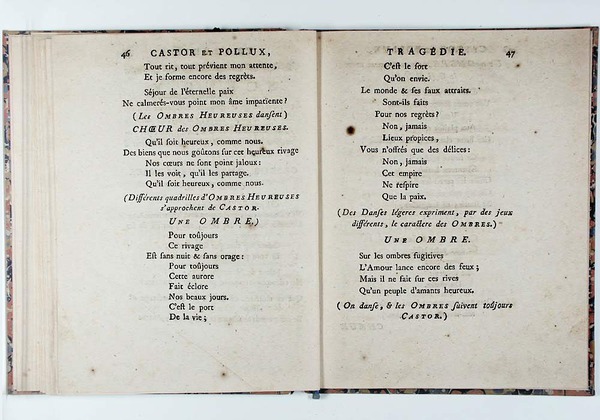 46 CASTOR ET POLLUX,
Tout rit, tout prévient mon attente,
Et je forme encore des regrèts.
Séjour de l'éternelle paix
Ne calmerés-vous point mon âme impatiente?
(Les OMBRES HEUREUSES dansent)
CHŒUR des OMBRES HEUREUSES.
Qu'il soit heureux, comme nous.
Des biens que nous goûtons sur cet heureux rivage
Nos cœurs ne sont point jaloux:
Il les voit, qu'il les partage.
Qu'il soit heureux, comme nous.
(Différents quadrilles d'OMBRES HEUREUSES
s'approchent de CASTOR.
UNE OMBRE.)
Pour toûjours
Ce rivage
Est sans nuit & sans orage:
Pour toûjours
Cette aurore
Fait éclore
Nos beaux jours.
C'est le port
De la vie;
TRAGÉDIE. 47
C'est le sort
Qu'on envie.
Le monde & ses faux attraits.
Sont-ils faits
Pour nos regrèts?
Non, jamais
Lieux propices,
Vous n'offrés que des délices:
Non, jamais
Cet empire
Ne respire
Que la paix.
(Des Danses légeres expriment, par des jeux
différents, le caractere des OMBRES.)
UNE OMBRE.
Sur les ombres fugitives
L'Amour lance encore des feux;
Mais il ne fait sur ces rives
Qu'un peuple d'amants heureux.
(On danse, & les OMBRES suivent toûjours
CASTOR.)